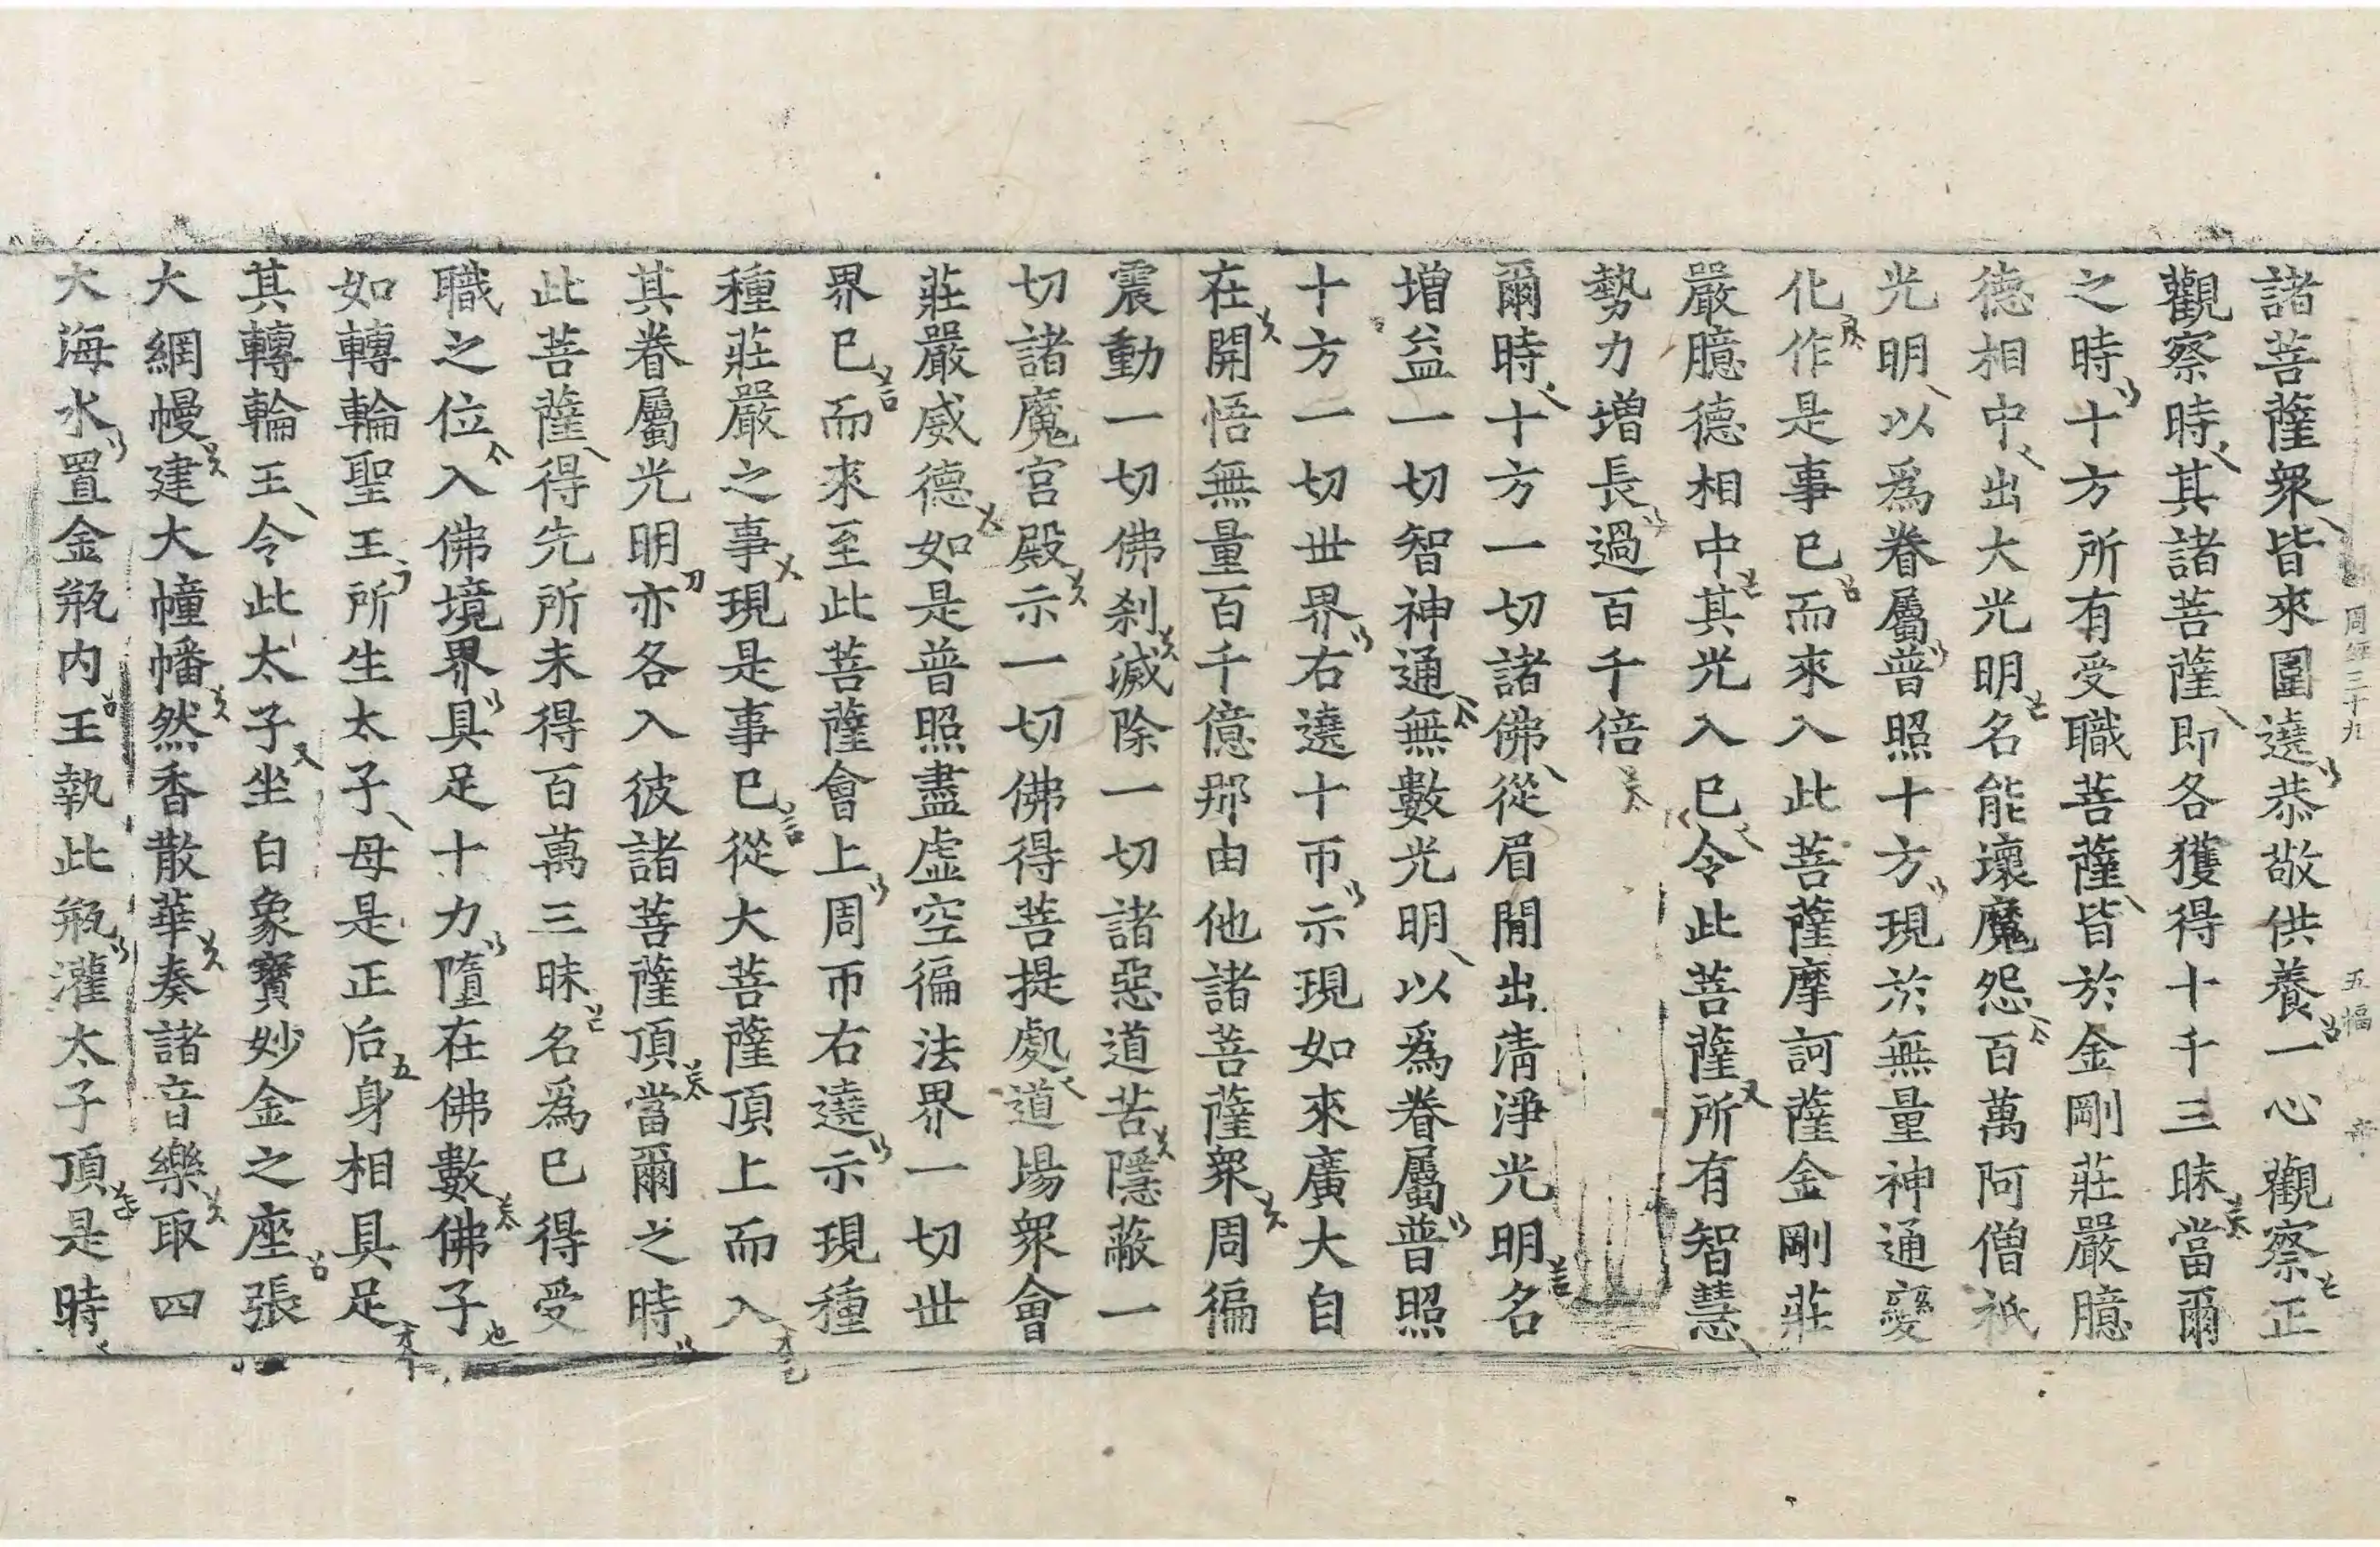 周經三十九 五幅
諸菩薩衆皆來圍遶恭敬供養一心觀察正
觀察時其諸菩薩即各獲得十千三昧當爾
之時十方所有受職菩薩皆於金剛莊嚴臆
德相中出大光明名能壞魔怨百萬阿僧祇
光明以爲眷屬普照十方現於無量神通變
化作是事已而來入此菩薩摩訶薩金剛莊
嚴臆德相中其光入已令此菩薩所有智慧
勢力增長過百千倍
爾時十方一切諸佛從眉閒出清淨光明名
增益一切智神通無數光明以爲眷屬普照
十方一切世界右遶十帀示現如來廣大自
在開悟無量百千億那由他諸菩薩衆周徧
震動一切佛刹滅除一切諸惡道苦隱蔽一
切諸魔宮殿示一切佛得菩提處道場衆會
莊嚴威德如是普照盡虛空徧法界一切世
界已而來至此菩薩會上周帀右遶示現種
種莊嚴之事現是事已從大菩薩頂上而入
其眷屬光明亦各入彼諸菩薩頂當爾之時
此菩薩得先所未得百萬三昧名爲已得受
職之位入佛境界具足十力墮在佛數佛子
如轉輪聖王所生太子母是正后身相具足
其轉輪王令此太子坐白象寶妙金之座張
大網幔建大幢幡然香散華奏諸音樂取四
大海水置金甁內王執此甁灌太子頂是時